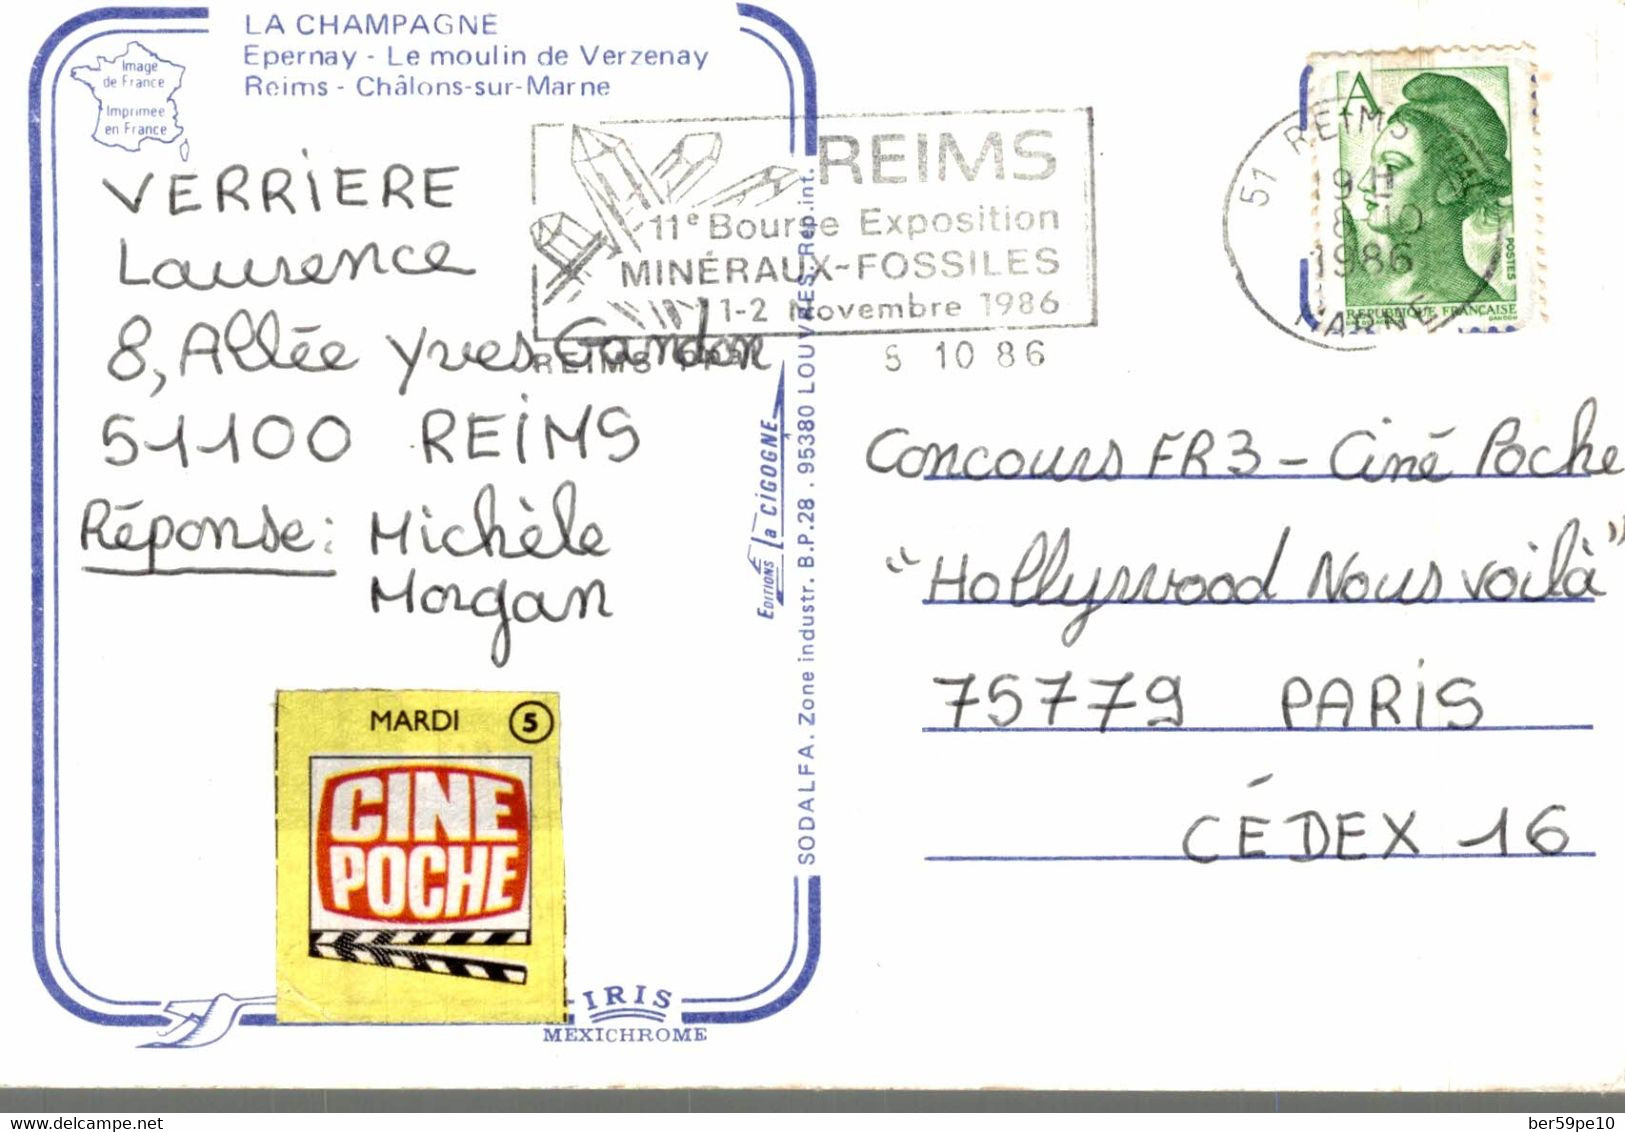 LA CHAMPAGNE
Epernay - Le moulin de Verzenay
Reims - Châlons-sur-Marne
Image
de France
Imprimée
en France
VERRIERE
Laurence
8, Allée Yves Gandon
51100 REIMS
Réponse: Michèle
Morgan
MARDI 5
CINE
POCHE
IRIS
MEXICHROME
EDITIONS La CIGOGNE
SODALFA. Zone industr. B.P.28. 95380 LOUVRES. Rep.int.
REIMS
11e Bourse Exposition
MINÉRAUX-FOSSILES
1-2 Novembre 1986
REIMS
10 86
51 REIMS
MARNE
1986
A
POSTES
REPUBLIQUE FRANÇAISE
GANDON
Concours FR3 - Ciné Poche
"Hollywood Nous voilà"
75779 PARIS
CÉDEX 16
delcampe.net
ber59pe10